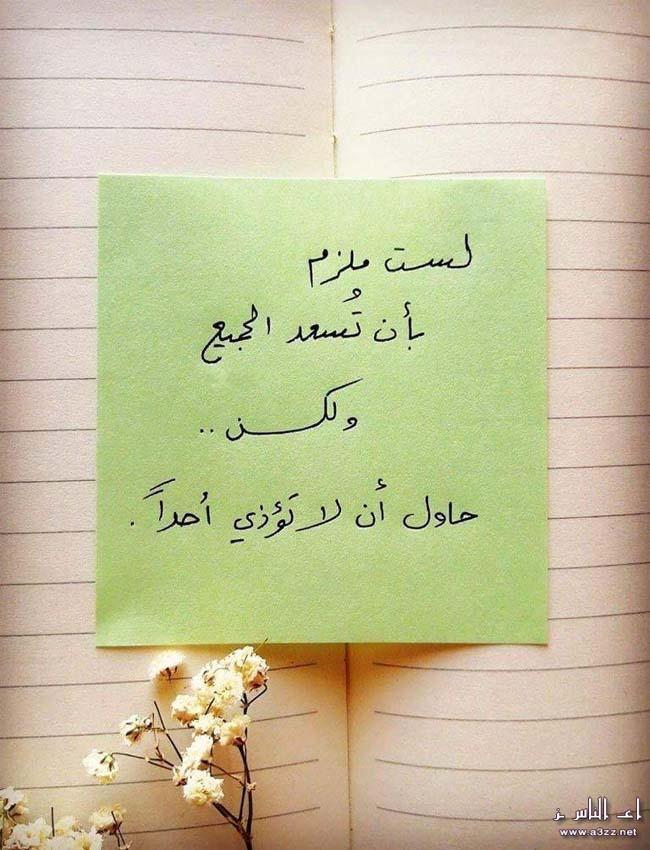 لست ملزم
بأن تُسعد الجميع
ولكن ..
حاول أن لا تؤذي أحداً .
اعز الناس
www.a3zz.net